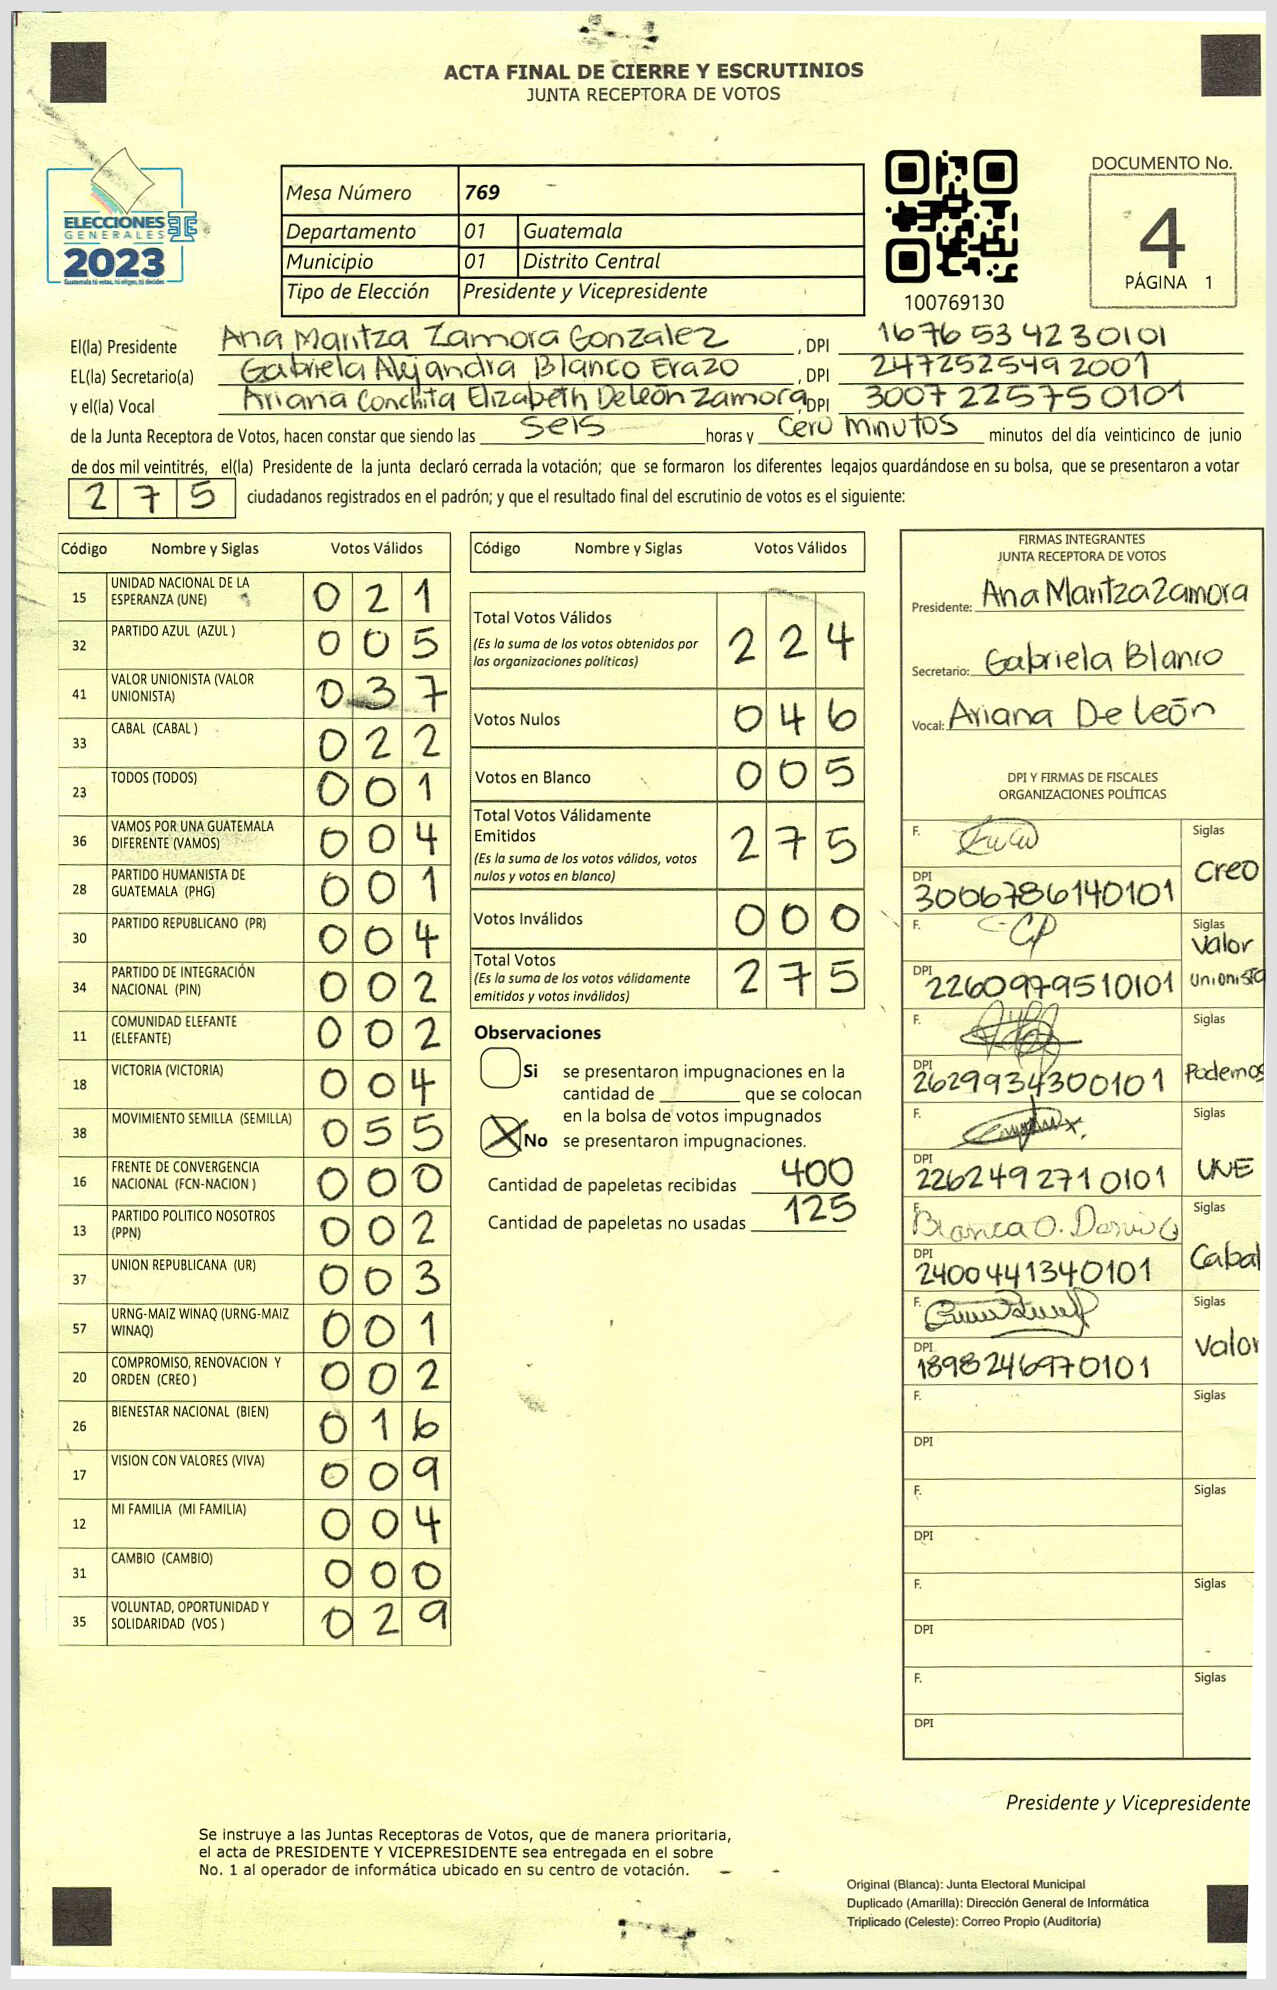 ACTA FINAL DE CIERRE Y ESCRUTINIOS
JUNTA RECEPTORA DE VOTOS
ELECCIONES
GENERALES
2023
Guatemala tú votas, tú eliges, tú decides
Mesa Número 769
Departamento 01 Guatemala
Municipio 01 Distrito Central
Tipo de Elección Presidente y Vicepresidente
100769130
DOCUMENTO No.
4
PÁGINA 1
El(la) Presidente Ana Maritza Zamora Gonzalez , DPI 1676 53423 0101
EL(la) Secretario(a) Gabriela Alejandra Blanco Erazo , DPI 247252549 2001
y el(la) Vocal Ariana Conchita Elizabeth De león Zamora, DPI 3007 225750101
de la Junta Receptora de Votos, hacen constar que siendo las seis horas y cero minutos minutos del día veinticinco de junio
de dos mil veintitrés, el(la) Presidente de la junta declaró cerrada la votación; que se formaron los diferentes legajos guardándose en su bolsa, que se presentaron a votar
275 ciudadanos registrados en el padrón; y que el resultado final del escrutinio de votos es el siguiente:
Código Nombre y Siglas Votos Válidos
15 UNIDAD NACIONAL DE LA ESPERANZA (UNE) 021
32 PARTIDO AZUL (AZUL ) 005
41 VALOR UNIONISTA (VALOR UNIONISTA) 037
33 CABAL (CABAL ) 022
23 TODOS (TODOS) 001
36 VAMOS POR UNA GUATEMALA DIFERENTE (VAMOS) 004
28 PARTIDO HUMANISTA DE GUATEMALA (PHG) 001
30 PARTIDO REPUBLICANO (PR) 004
34 PARTIDO DE INTEGRACIÓN NACIONAL (PIN) 002
11 COMUNIDAD ELEFANTE (ELEFANTE) 002
18 VICTORIA (VICTORIA) 004
38 MOVIMIENTO SEMILLA (SEMILLA) 055
16 FRENTE DE CONVERGENCIA NACIONAL (FCN-NACION ) 000
13 PARTIDO POLITICO NOSOTROS (PPN) 002
37 UNION REPUBLICANA (UR) 003
57 URNG-MAIZ WINAQ (URNG-MAIZ WINAQ) 001
20 COMPROMISO, RENOVACION Y ORDEN (CREO ) 002
26 BIENESTAR NACIONAL (BIEN) 016
17 VISION CON VALORES (VIVA) 009
12 MI FAMILIA (MI FAMILIA) 004
31 CAMBIO (CAMBIO) 000
35 VOLUNTAD, OPORTUNIDAD Y SOLIDARIDAD (VOS ) 029
Código Nombre y Siglas Votos Válidos
Total Votos Válidos 224
(Es la suma de los votos obtenidos por
las organizaciones políticas)
Votos Nulos 046
Votos en Blanco 005
Total Votos Válidamente
Emitidos 275
(Es la suma de los votos válidos, votos
nulos y votos en blanco)
Votos Inválidos 000
Total Votos 275
(Es la suma de los votos válidamente
emitidos y votos inválidos)
Observaciones
Si se presentaron impugnaciones en la
cantidad de ________ que se colocan
en la bolsa de votos impugnados
No se presentaron impugnaciones.
Cantidad de papeletas recibidas 400
Cantidad de papeletas no usadas 125
FIRMAS INTEGRANTES
JUNTA RECEPTORA DE VOTOS
Presidente: Ana Maritza Zamora
Secretario: Gabriela Blanco
Vocal: Ariana De león
DPI Y FIRMAS DE FISCALES
ORGANIZACIONES POLÍTICAS
F. Siglas
DPI 3006786140101 Creo
F. Siglas
DPI 2260979510101 Valor Unionista
F. Siglas
DPI 2629934300101 Podemos
F. Siglas
DPI 2262492710101 UNE
F. Blanca O. Siglas
DPI 2400441340101 Cabal
F. Siglas
DPI 1898246970101 Valor
F. Siglas
DPI
F. Siglas
DPI
F. Siglas
DPI
F. Siglas
DPI
Presidente y Vicepresidente
Se instruye a las Juntas Receptoras de Votos, que de manera prioritaria,
el acta de PRESIDENTE Y VICEPRESIDENTE sea entregada en el sobre
No. 1 al operador de informática ubicado en su centro de votación.
Original (Blanca): Junta Electoral Municipal
Duplicado (Amarilla): Dirección General de Informática
Triplicado (Celeste): Correo Propio (Auditoría)